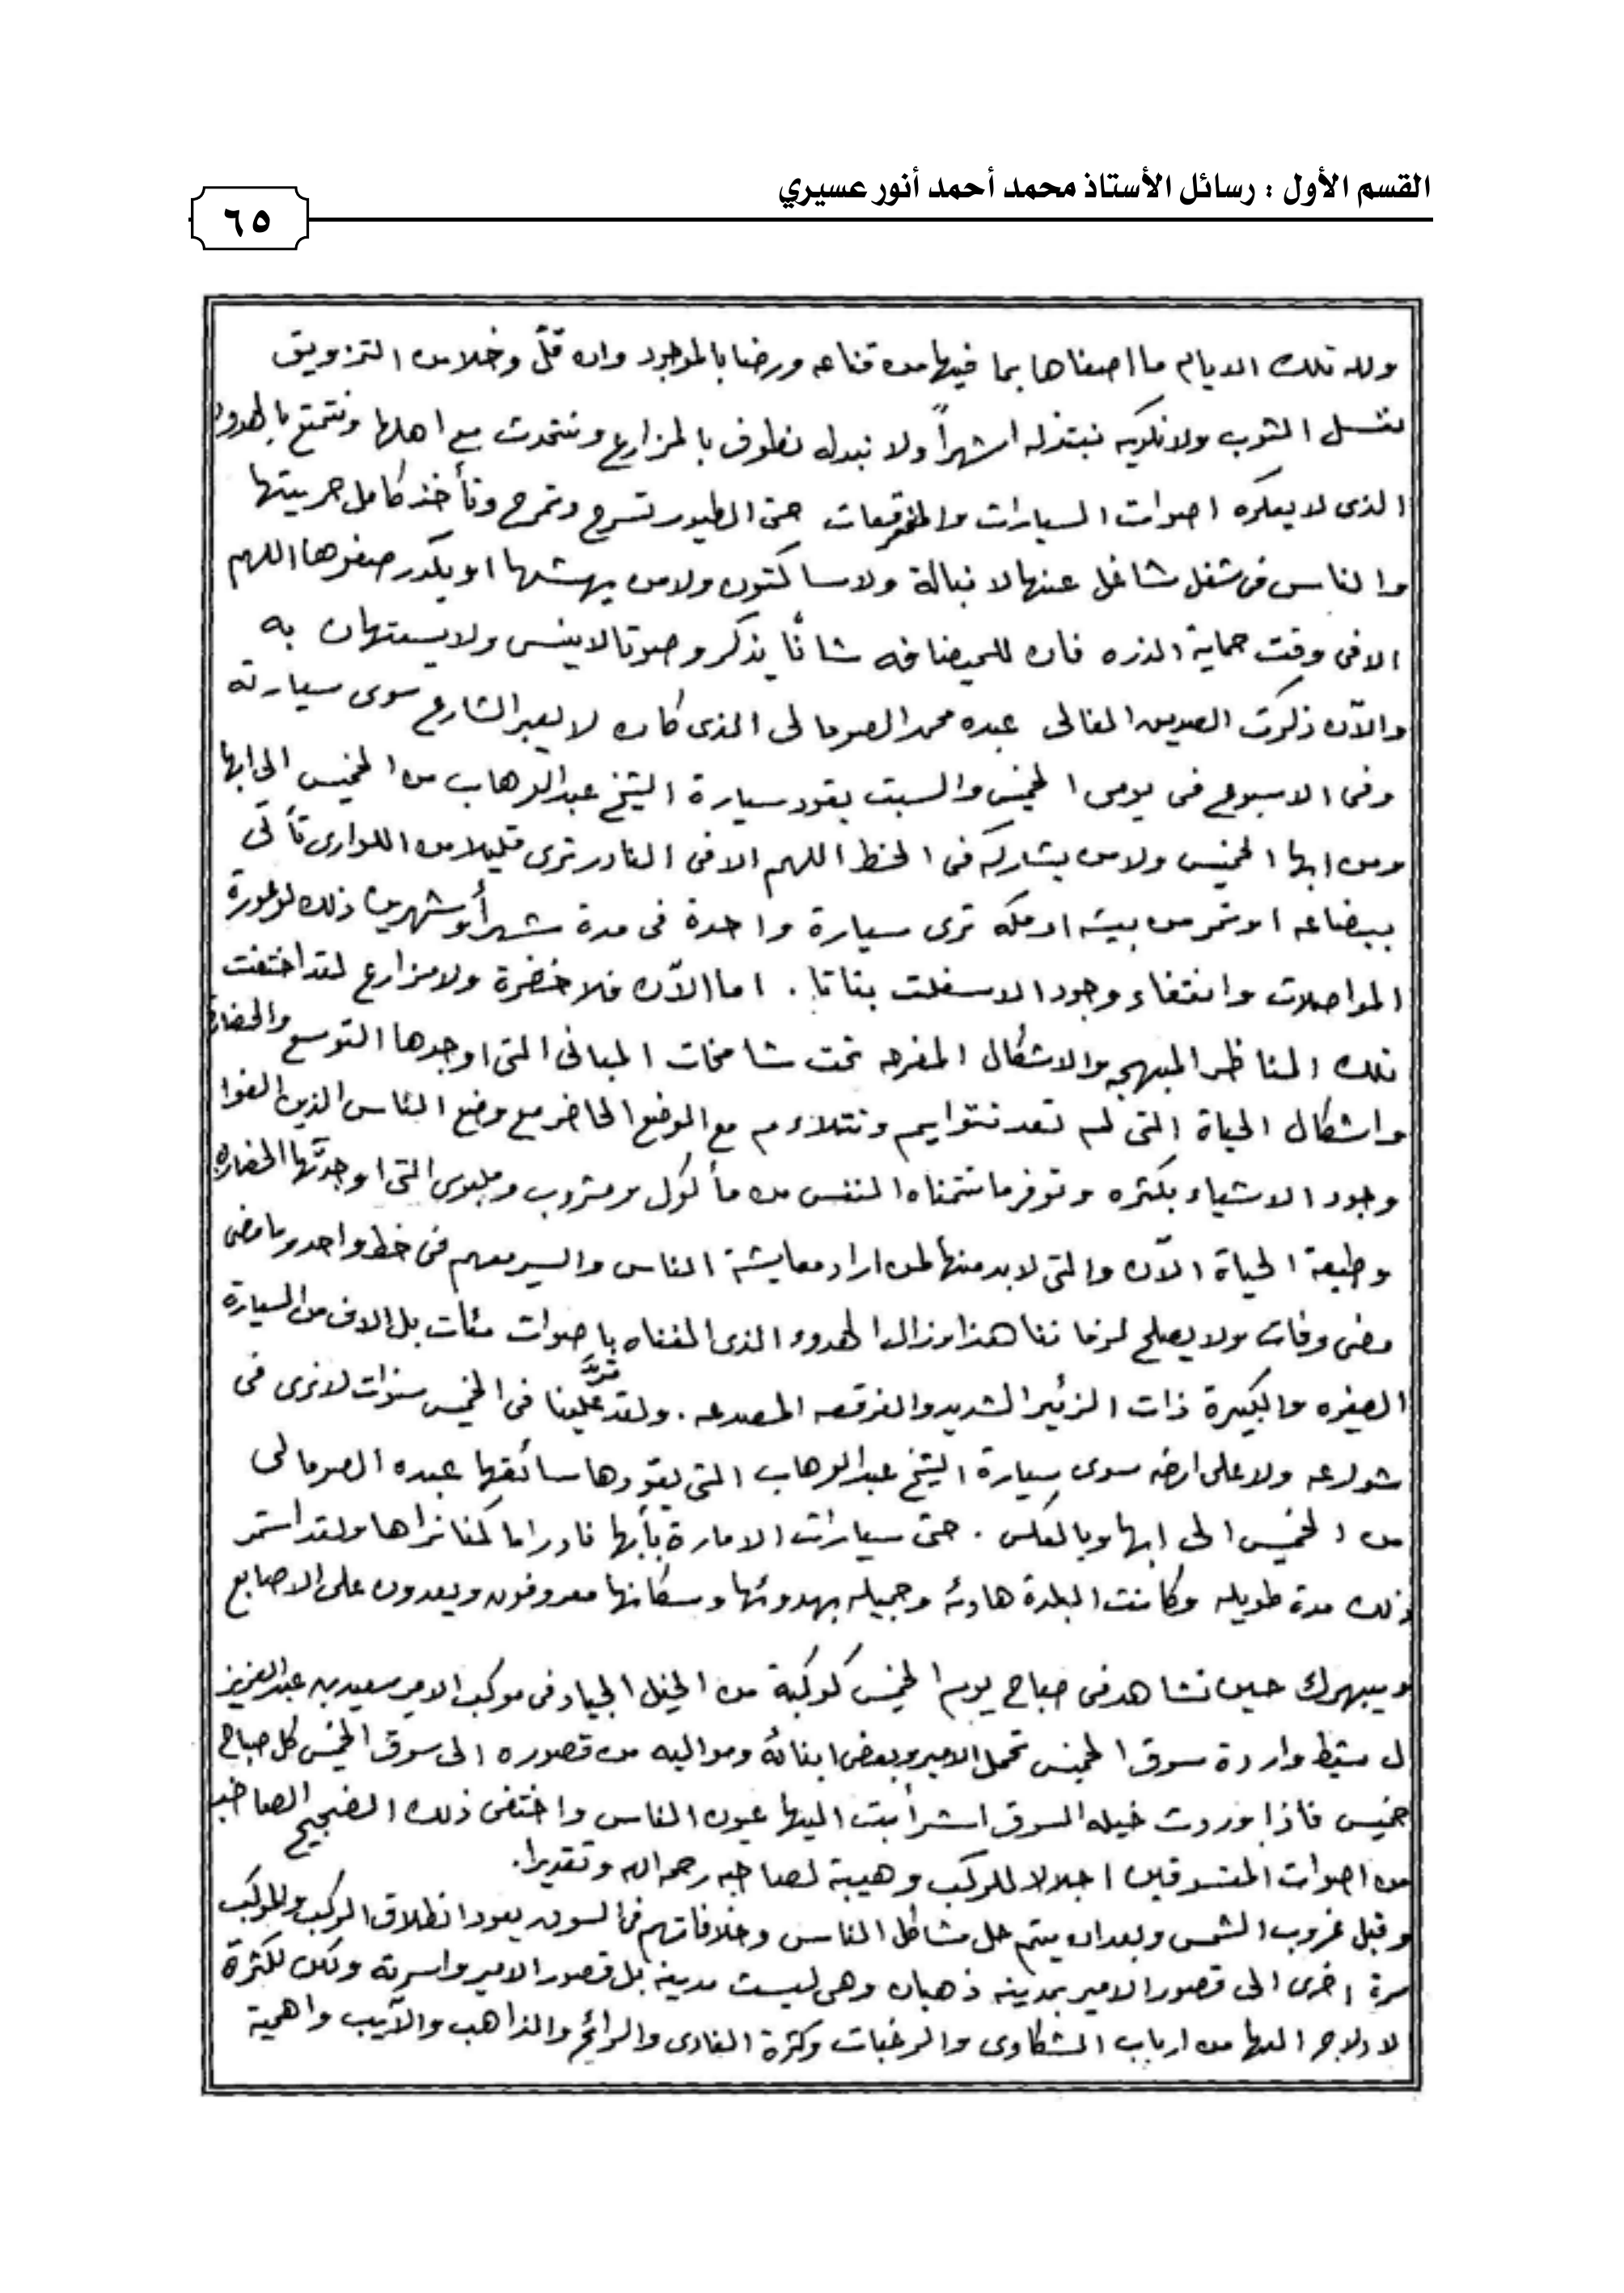 القسم الأول : رسائل الأستاذ محمد أحمد أنور عسيري
٦٥
ولله تلك الايام ما اصفاها بما فيها من قناعه ورضا بالموجود وان قلّ وخلا من التزويق
نغسل الثوب ولا نكويه نبتذله اشهراً ولا نبدله نطوف بالمزارع ونتحدث مع اهلها ونتمتع بالهدوء
الذى لا يعكره اصوات السيارات والمفرقعات حتى الطيور تسرح وتمرح وتأخذ كامل حريتها
والناس فى شغل شاغل عنها لا نبالة ولا ساكتون ولا من يهشها او يكدر صفوها اللهم
الا فى وقت حماية الذره فان للميضافه شانًا يذكر وصوتا لا ينسى ولا يستهان به
والآن ذكرت الصديق الغالى عبده محمد الصومالى الذى كان لا يعبر الشارع سوى سيارته
وفى الاسبوع فى يومى الخميس والسبت يقود سيارة الشيخ عبدالوهاب من الخميس الى ابها
ومن ابها الخميس ولا من يشاركه فى الخط اللهم الا فى النادر ترى قليلا من اللوارى تأتى
ببضاعه او تمر من بيشه او مكه ترى سيارة واحدة فى مدة شهر أو شهرين ذلك لوعورة
المواصلات وانتفاء وجود الاسفلت بتاتا . اما الآن فلا خضرة ولا مزارع لقد اختفت
تلك المناظر المبهجه والاشكال المفرحه تحت شامخات المبانى التى اوجدها التوسع والحضارة
واشكال الحياة التى لم تعد تتوايم وتتلاءم مع الوضع الحاضر مع وضع الناس الذين الفوا
وجود الاشياء بكثره وتوفر ما تتمناه النفس من مأكول ومشروب وملبوس التى اوجدتها الحضاره
وطبيعة الحياة الآن والتى لا بد منها لمن اراد معايشة الناس والسير معهم فى خط واحد وما مضى
مضى وفات ولا يصلح لزماننا هذا وزال الهدوء الذى الفناه باصوات مئات بل الاف من السيارة
الصغيره والكبيرة ذات الزئير الشديد والفرقعه المصدعه . ولقد تمرّ علينا فى الخميس سنوات لا نرى فى
شوارعه ولا على ارضه سوى سيارة الشيخ عبدالوهاب التى يقودها سائقها عبده الصومالى
من الخميس الى ابها وبالعكس . حتى سيارات الامارة بأبها نادراً ما كنا نراها ولقد استمر
ذلك مدة طويله وكانت البلدة هادئه وجميله بهدوئها وسكانها معروفون ويعدون على الاصابع
ويبهرك حين تشاهد فى صباح يوم الخميس كوكبة من الخيل الجياد فى موكب الامير سعيد بن عبدالعزيز
ل مشيط واردة سوق الخميس تحمل الامير وبعض ابنائه ومواليه من قصوره الى سوق الخميس كل صباح
خميس فاذا وردت خيله السوق اشرأبت اليها عيون الناس واختفى ذلك الضجيج الصاخب
من اصوات المتسوقين اجلالا للموكب وهيبة لصاحبه رحمه الله وتقديرا.
وقبل غروب الشمس وبعد ان يتم حل مشاكل الناس وخلافاتهم فى السوق يعود انطلاق الموكب والموكب
مرة اخرى الى قصور الامير بمدينه ذهبان وهى ليست مدينه بل قصور الامير واسرته ولكن لكثرة
اليها من ارباب الشكاوى والرغبات وكثرة الغادى والرائح والذاهب والآيب واهمية